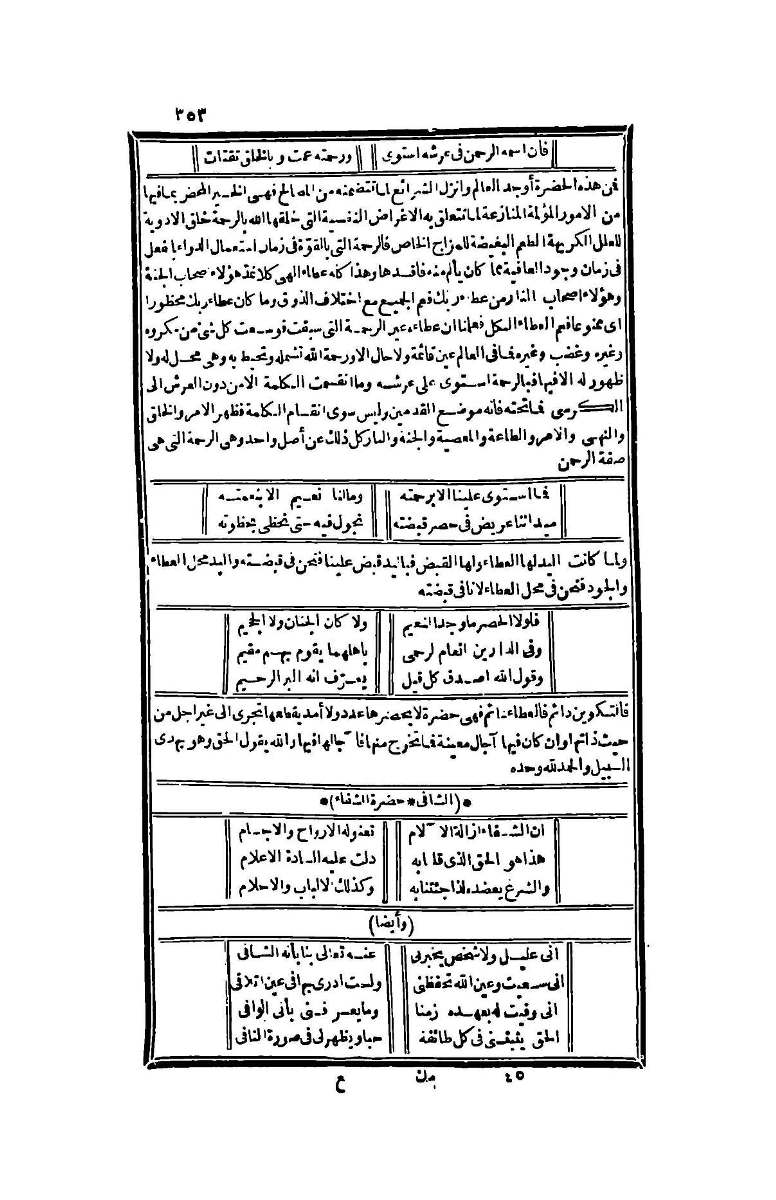 ٣٥٣
فان اسمه الرحمن فى عرشه استوى ورحمته عمت وبالخلق تقتات
فن هذه الحضرة أوجد العالم وانزل الشرائع لما تتضمنه من المصالح فهى الخير المحض بما فيها
من الامور المؤلمة المنازعة لما تتعلق به الاغراض النفسية التى خلقها الله بالرحمة خلق الادوية
للعلل الكريهة الطعم البغيضة للمزاج الخاص فالرحمة التى بالقوة فى زمان استعمال الدواء بالفعل
فى زمان وجود العافية مما كان يألم منه فاقدها وهذا كله عطاء الهى كلا نمد هؤلاء اصحاب الجنة
وهؤلاء اصحاب النار من عطاء ربك فعم الجميع مع اختلاف الذوق وما كان عطاء ربك محظورا
اى ممنوعا فعم العطاء الكل فعلمنا ان عطاءه عين الرحمة التى سبقت فوسعت كل شئ من مكروه
وغيره وغضب وغيره فما فى العالم عين قائمة ولا حال الا ورحمة الله تشمله وتحيط به وهى محل له ولا
ظهور له الا فيها فبالرحمة استوى على عرشه وما انقسمت الكلمة الا من دون العرش الى
الكرسى فما تحته فانه موضع القدمين وليس سوى انقسام الكلمة فظهر الامر والخلق
والنهى والامر والطاعة والمعصية والجنة والنار كل ذلك عن أصل واحد وهى الرحمة التى هى
صفة الرحمن
فما استوى علينا الا برحمته وما لنا نعيم الا بنعمته
ميداننا عريض فى حصر قبضته نجول فيه حتى نحظى بحظوته
ولما كانت اليد لها العطاء ولها القبض فباليد قبض علينا فنحن فى قبضته واليد محل العطاء
والجود فنحن فى محل العطاء لانا فى قبضته
فلولا الحصر ما وجد النعيم ولا كان الجنان ولا الجحيم
وفى الدارين انعام لرحمى باهلهما يقوم بهم مقيم
وقول الله اصدق كل قيل يعرف انه البر الرحيم
فالتكوين دائم فالعطاء دائم فهى حضرة لا يحصرها عدد ولا أمد يقطعها تجرى الى غير اجل من
حيث ذاتها وان كان فيها آجال معينة فما تخرج منها فا آجالها فيها والله يقول الحق وهو يهدى
السبيل والحمد لله وحده
* (الشافى * حضرة الشفاء) *
ان الشفاء ازالة الآلام تعنو له الارواح والاجسام
هذا هو الحق الذى قلنا به دلت عليه السادة الاعلام
والشرع يعضده لذا جئتنا به وكذلك الالباب والاحلام
(وأيضا)
انى عليل ولا شخص يخبرنى عنه تعالى بنا بأنه الشافى
انى سمعت وعين الله تحفظنى ولست ادرى بها فى عين اتلافى
انى وفيت له بعهده زمنا وما يعرفنى بأنى الوافى
الحق يثبتنى فى كل طائفة حبا ويظهر لى فى صورة النافى
٤٥ مك ع